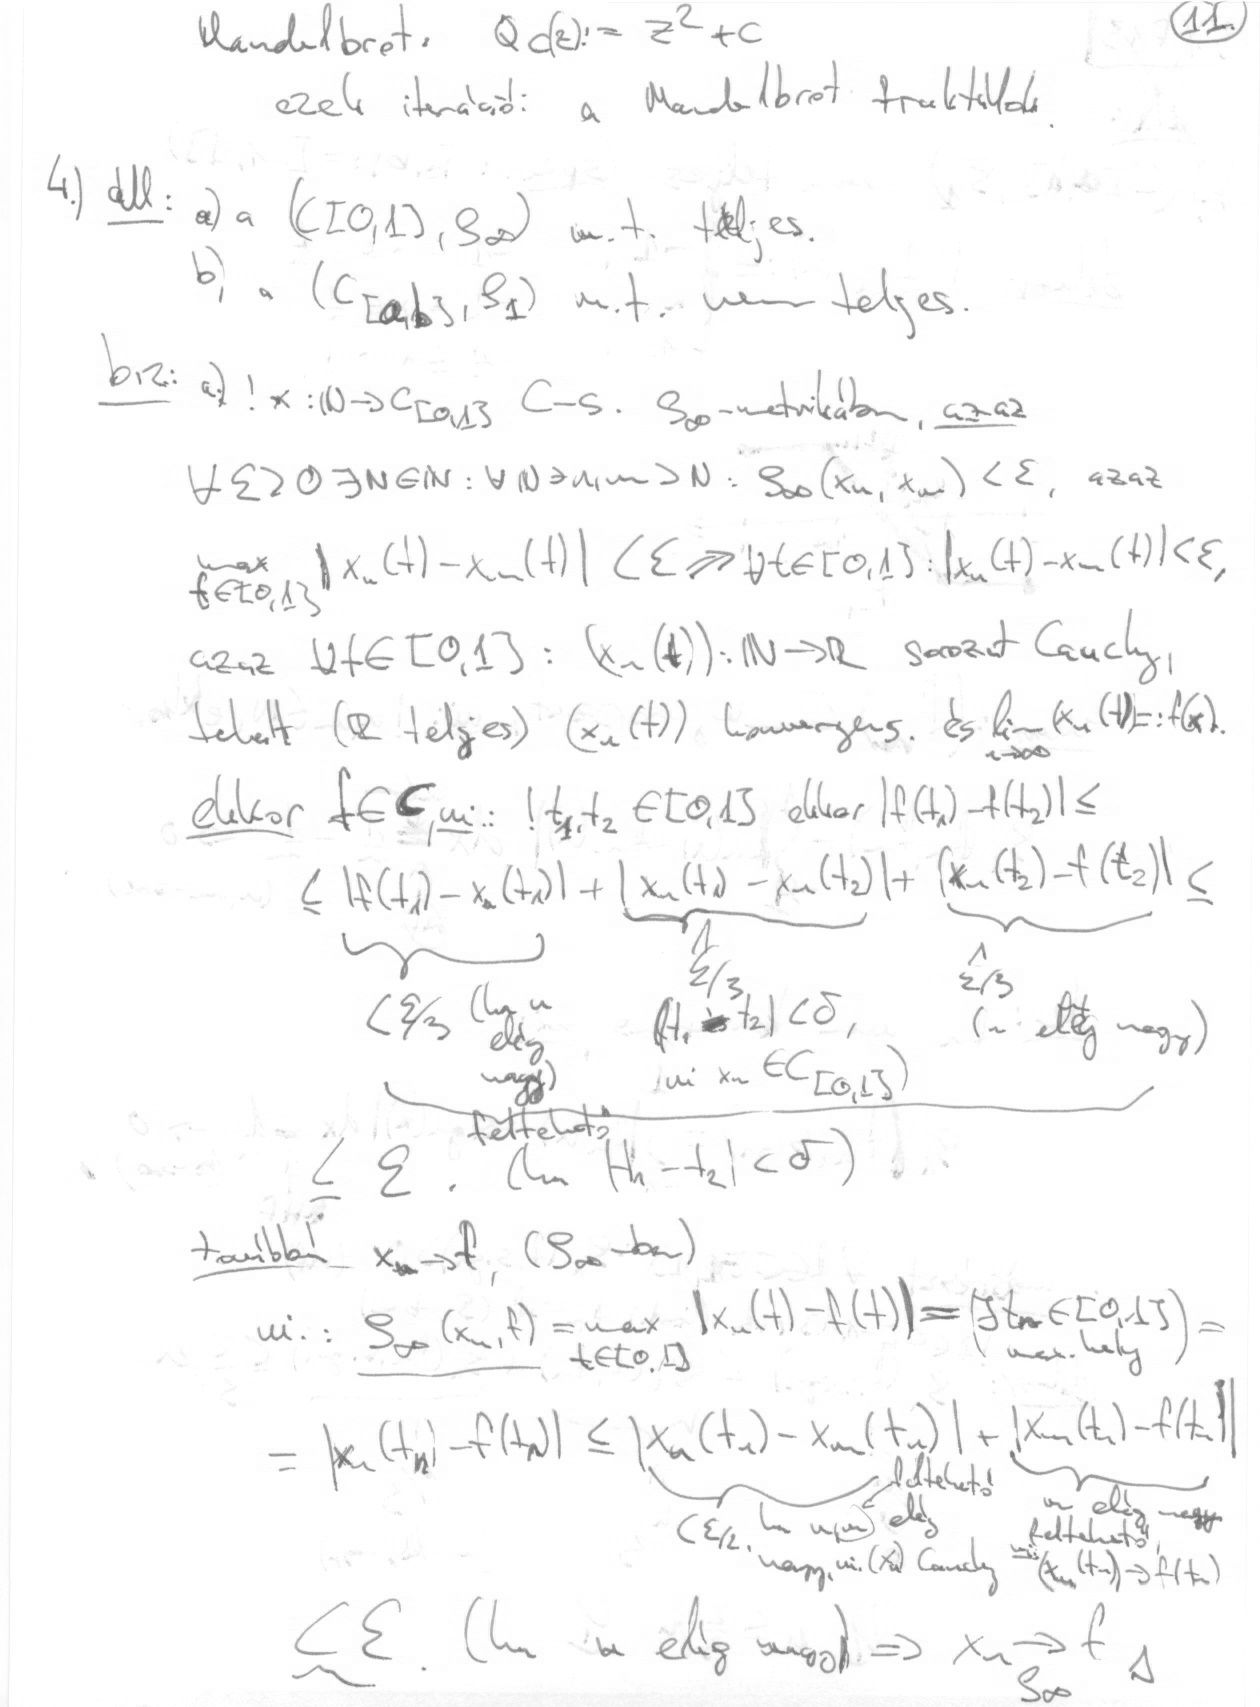 11.
Mandelbrot: Q_c(z) := z² + c
ezek iterációi: a Mandelbrot fraktálok.
4.) áll: a) a (C[0,1], ρ_∞) m.t. teljes.
b) a (C_[a,b], ρ_1) m.t. nem teljes.
biz: a) ! x : ℕ → C_[0,1] C-s. ρ_∞-metrikában, azaz
∀ε>0 ∃N∈ℕ : ∀ℕ∋n,m>N : ρ_∞(x_n, x_m) < ε, azaz
max_{t∈[0,1]} |x_n(t) - x_m(t)| < ε ⇒ ∀t∈[0,1] : |x_n(t) - x_m(t)| < ε,
azaz ∀t∈[0,1] : (x_n(t)) : ℕ→ℝ sorozat Cauchy,
tehát (ℝ teljes) (x_n(t)) konvergens. és lim_{n→∞} (x_n(t)) =: f(x).
ekkor f∈C, ui.: ! t_1, t_2 ∈ [0,1] ekkor |f(t_1) - f(t_2)| ≤
≤ |f(t_1) - x_n(t_1)| + |x_n(t_1) - x_n(t_2)| + |x_n(t_2) - f(t_2)| ≤
< ε/3 (ha n elég nagy) ∧ ε/3 |t_1 - t_2| < δ, (ui x_n ∈ C_[0,1]) ∧ ε/3 (n elég nagy)
feltehető
≤ ε. (ha |t_1 - t_2| < δ)
továbbá x_n → f, (ρ_∞-ban)
ui.: ρ_∞(x_n, f) = max_{t∈[0,1]} |x_n(t) - f(t)| = (∃t_n∈[0,1] max. hely) =
= |x_n(t_n) - f(t_n)| ≤ |x_n(t_n) - x_m(t_n)| + |x_m(t_n) - f(t_n)|
< ε/2. ha n,m elég nagy, ui. (x_n) Cauchy
feltehető
m elég nagy feltehető, ui. (x_m(t_n)) → f(t_n)
≤ ε. (ha n elég nagy) ⇒ x_n → f
ρ_∞